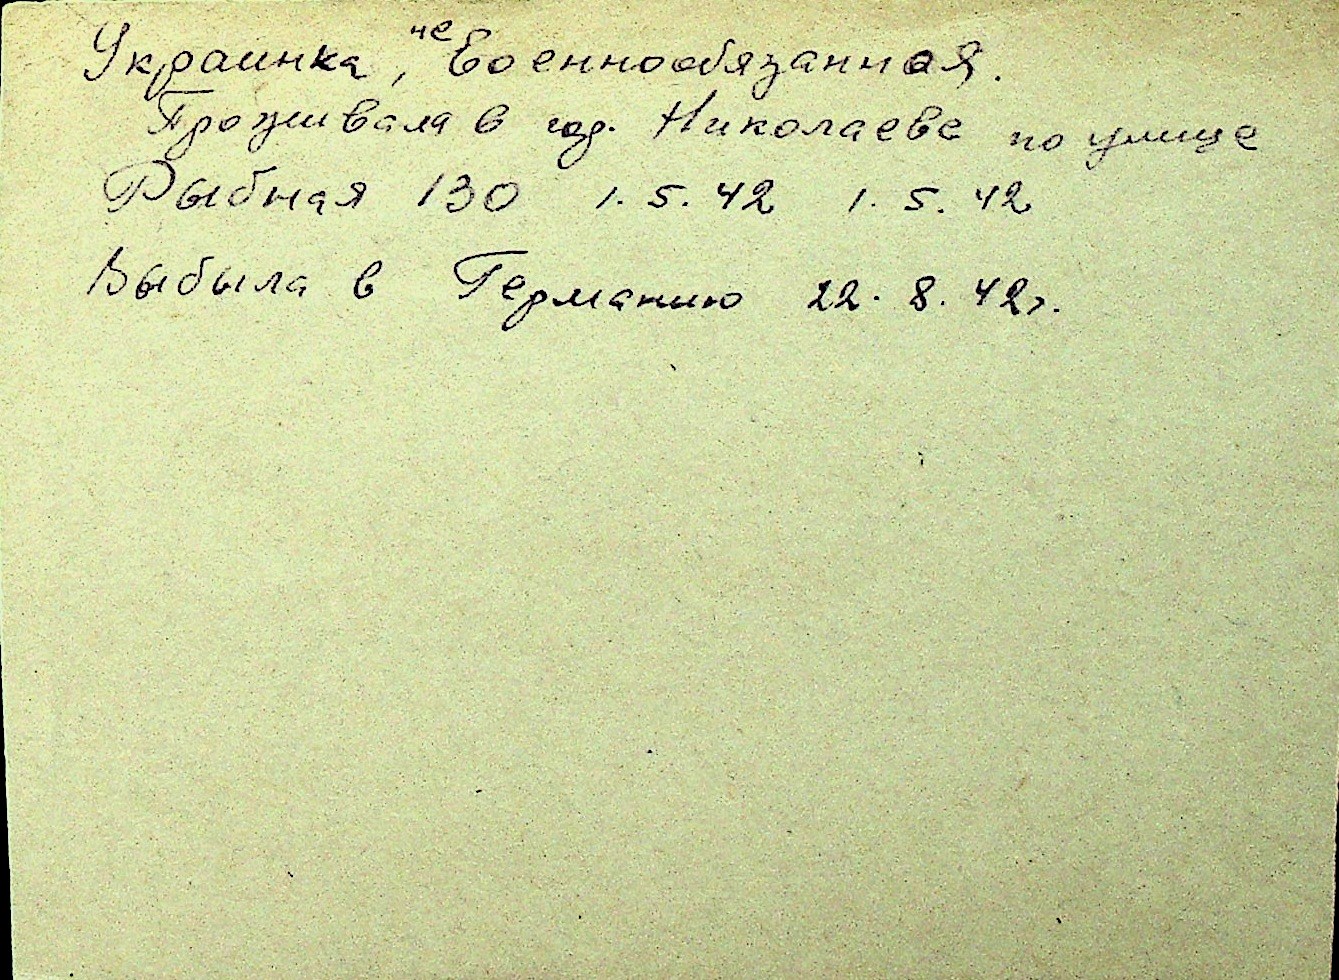 Украинка, не военнообязанная.
Проживала в гор. Николаеве по улице
Рыбная 130 1.5.42 1.5.42
Выбыла в Германию 22.8.42г.